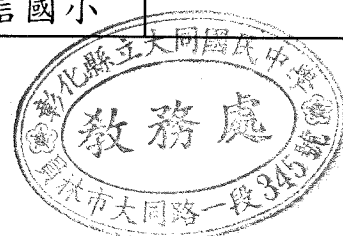 信國小
彰化縣立大同國民中學
教務處
員林市大同路一段345號